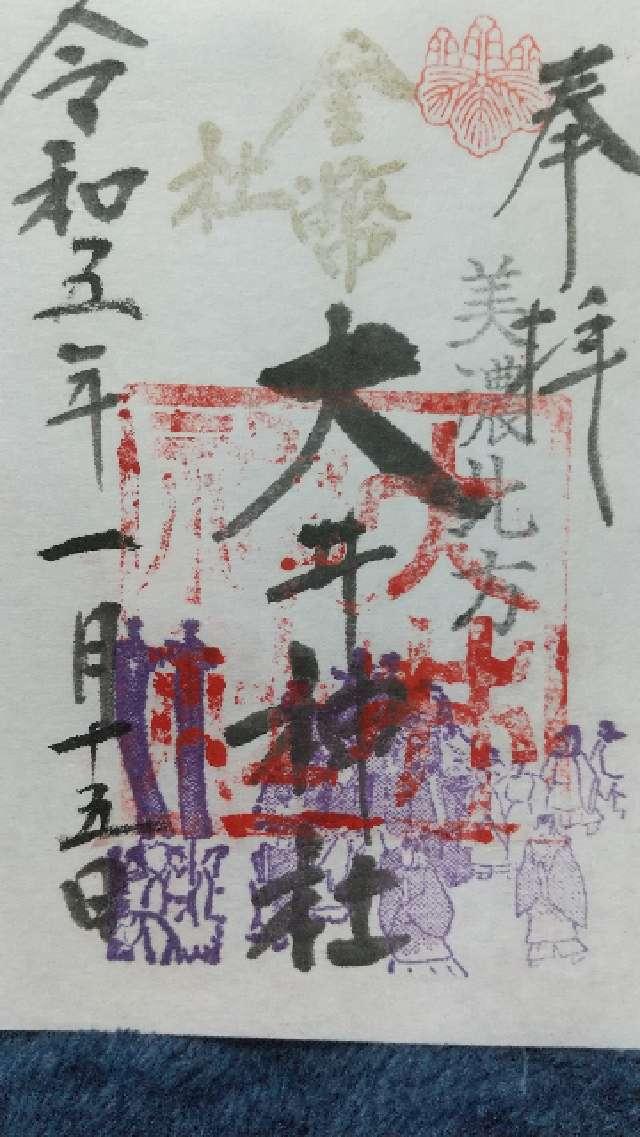 奉拝
美濃北方
金幣社
大井神社
令和五年一月十五日